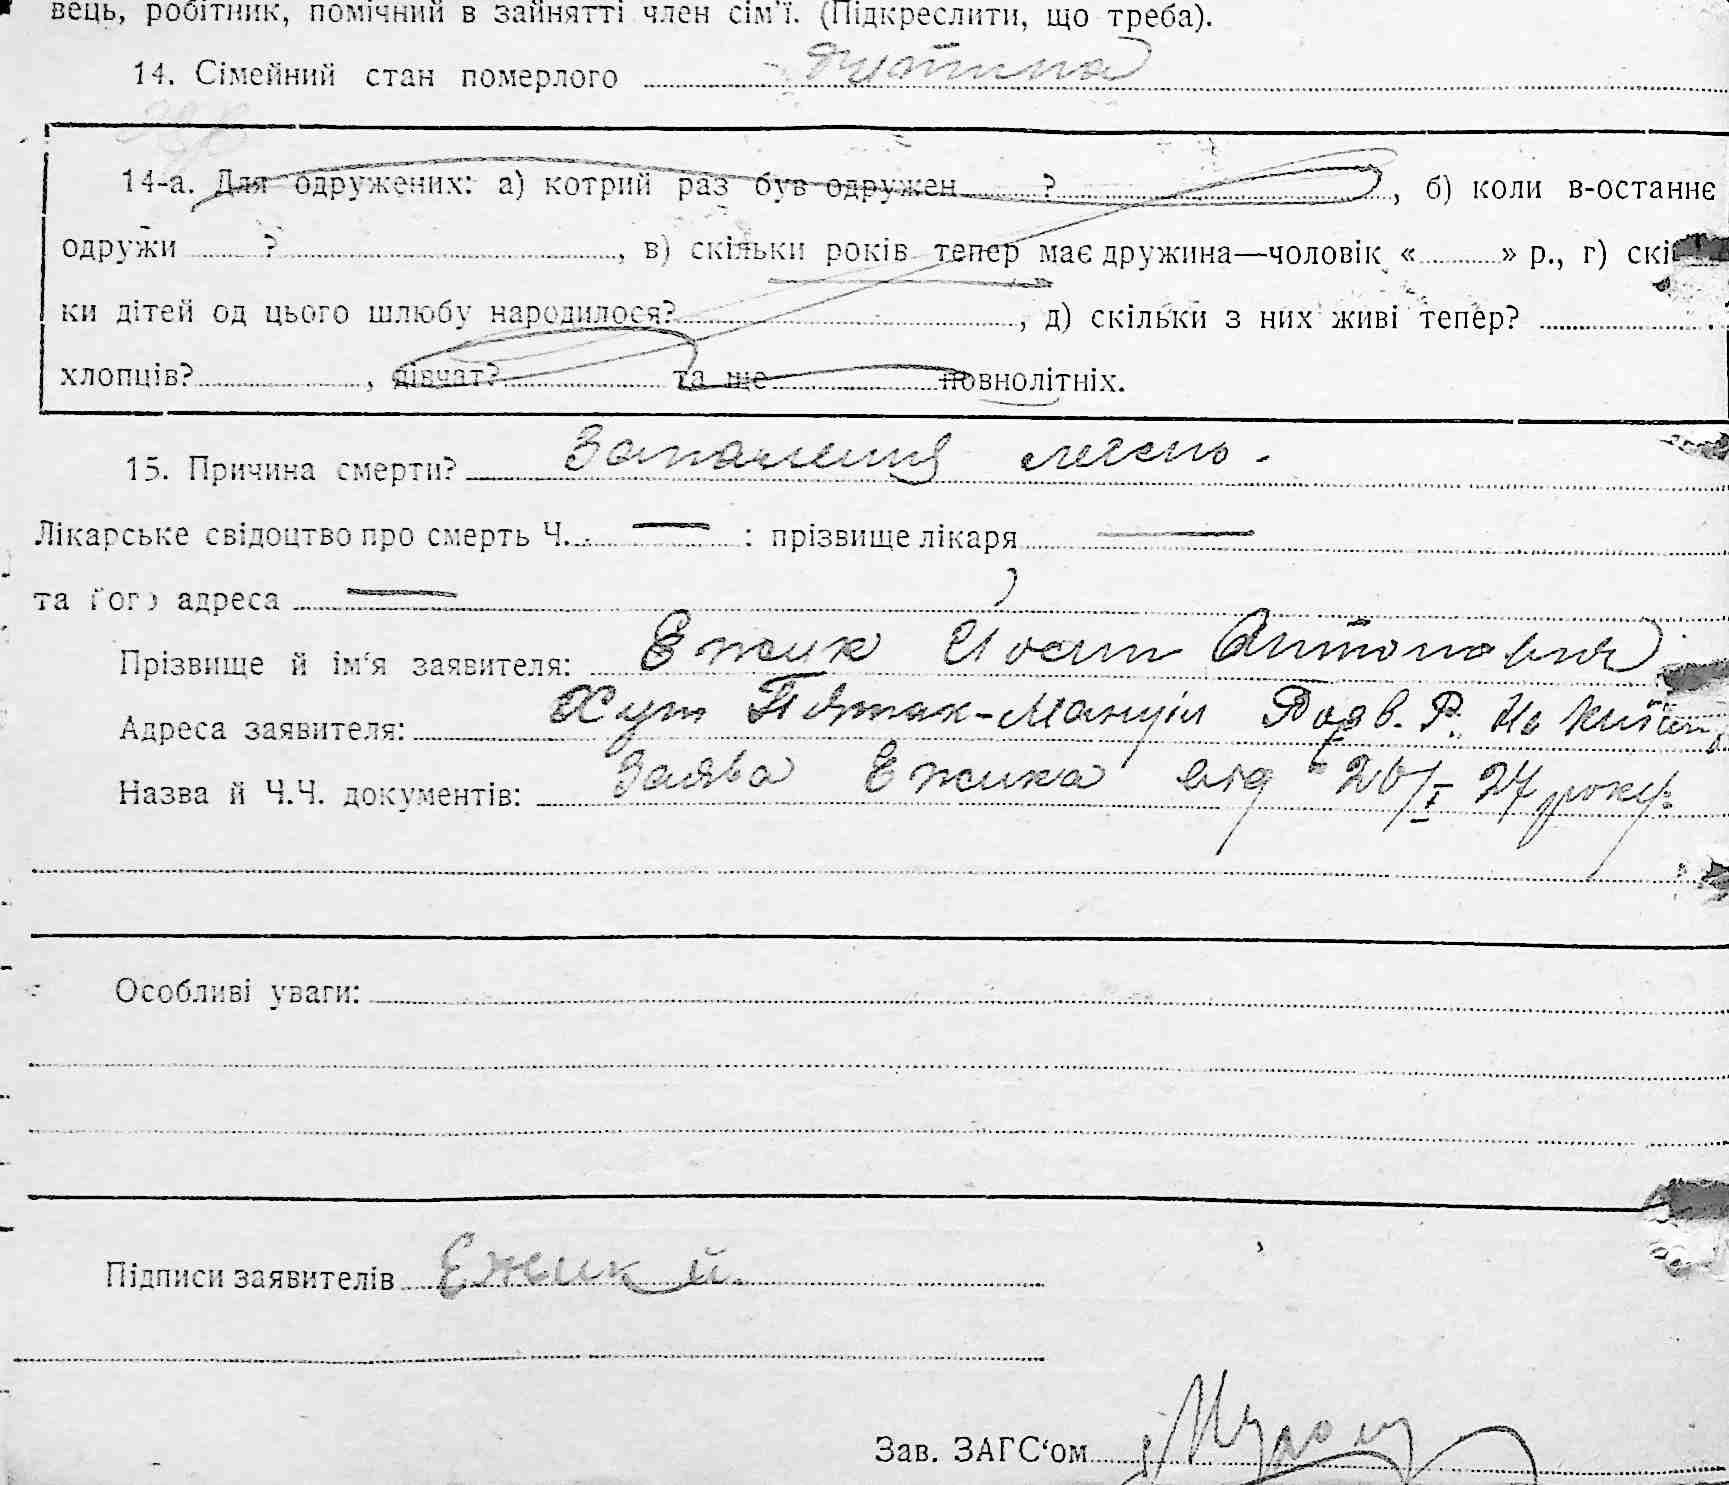 вець, робітник, помічний в зайнятті член сім'ї. (Підкреслити, що треба).
14. Сімейний стан померлого дитина
14-а. Для одружених: а) котрий раз був одружен ? , б) коли в-останнє
одружи ? , в) скільки років тепер має дружина—чоловік « » р., г) скі
ки дітей од цього шлюбу народилося? , д) скільки з них живі тепер?
хлопців? , дівчат? та ще повнолітніх.
15. Причина смерти? Запалення легень.
Лікарське свідоцтво про смерть Ч. — : прізвище лікаря —
та його адреса —
Прізвище й ім'я заявителя: Ежик Йосип Антонович
Адреса заявителя: Хут
Назва й Ч.Ч. документів: Заява Ежика від 26/I 27 року.
Особливі уваги:
Підписи заявителів Ежик й.
Зав. ЗАГС'ом